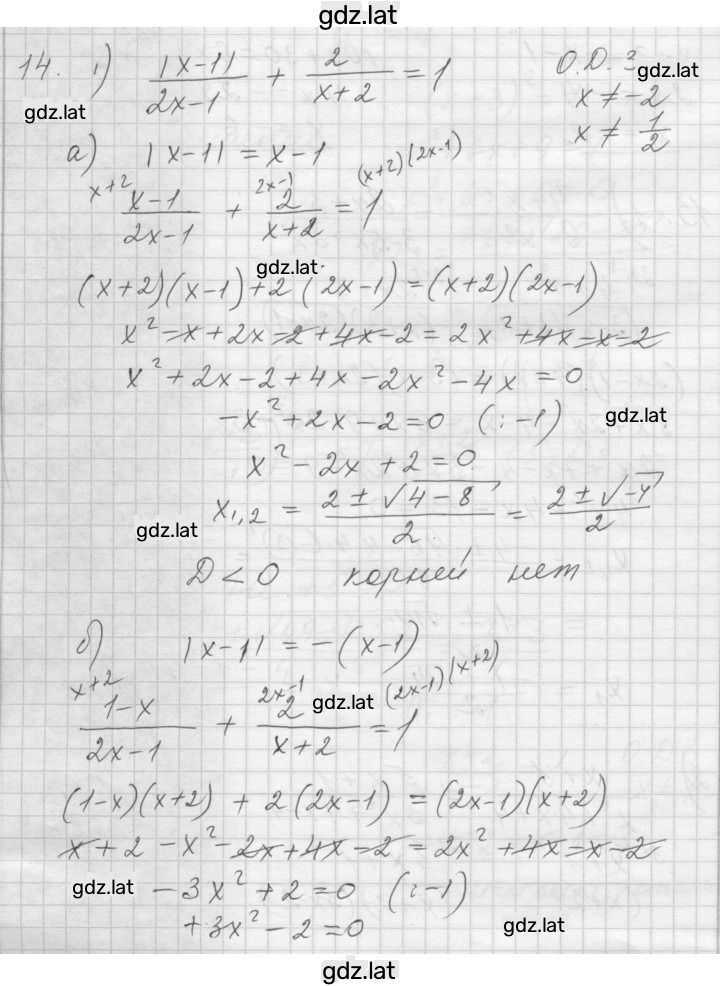 gdz.lat
14. 1) |x-1|/(2x-1) + 2/(x+2) = 1 О.Д.З gdz.lat
gdz.lat x ≠ -2
x ≠ 1/2
а) |x-1| = x-1
x+2 (x-1)/(2x-1) + 2x-1 2/(x+2) = 1 (x+2)(2x-1)
gdz.lat
(x+2)(x-1)+2(2x-1)=(x+2)(2x-1)
x² - x + 2x - 2 + 4x - 2 = 2x² + 4x - x - 2
x² + 2x - 2 + 4x - 2x² - 4x = 0
-x² + 2x - 2 = 0 (: -1) gdz.lat
x² - 2x + 2 = 0
x₁,₂ = (2 ± √(4-8))/2 = (2 ± √-4)/2
gdz.lat
D < 0 корней нет
б) |x-1| = -(x-1)
x+2 (1-x)/(2x-1) + 2x-1 2/(x+2) = 1 (2x-1)(x+2)
gdz.lat
(1-x)(x+2) + 2(2x-1) = (2x-1)(x+2)
x + 2 - x² - 2x + 4x - 2 = 2x² + 4x - x - 2
gdz.lat -3x² + 2 = 0 (: -1)
+3x² - 2 = 0 gdz.lat
gdz.lat